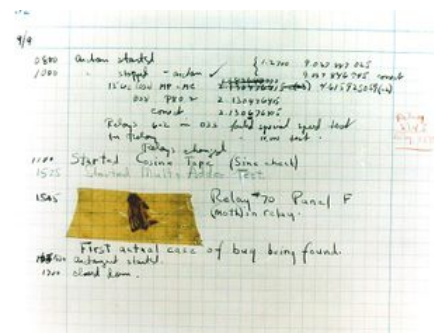 9/9
0800 Antan started
1000 " stopped - antan ✓
13"uc (032) MP-MC
(033) PRO 2 2.130476415
conect 2.130676415
Relays 6-2 in 033 failed special speed test
in relay " test.
Relays changed
1100 Started Cosine Tape (Sine check)
1525 Started Multi Adder Test.
1545 Relay #70 Panel F
(moth) in relay.
First actual case of bug being found.
antangent started.
1700 closed down.